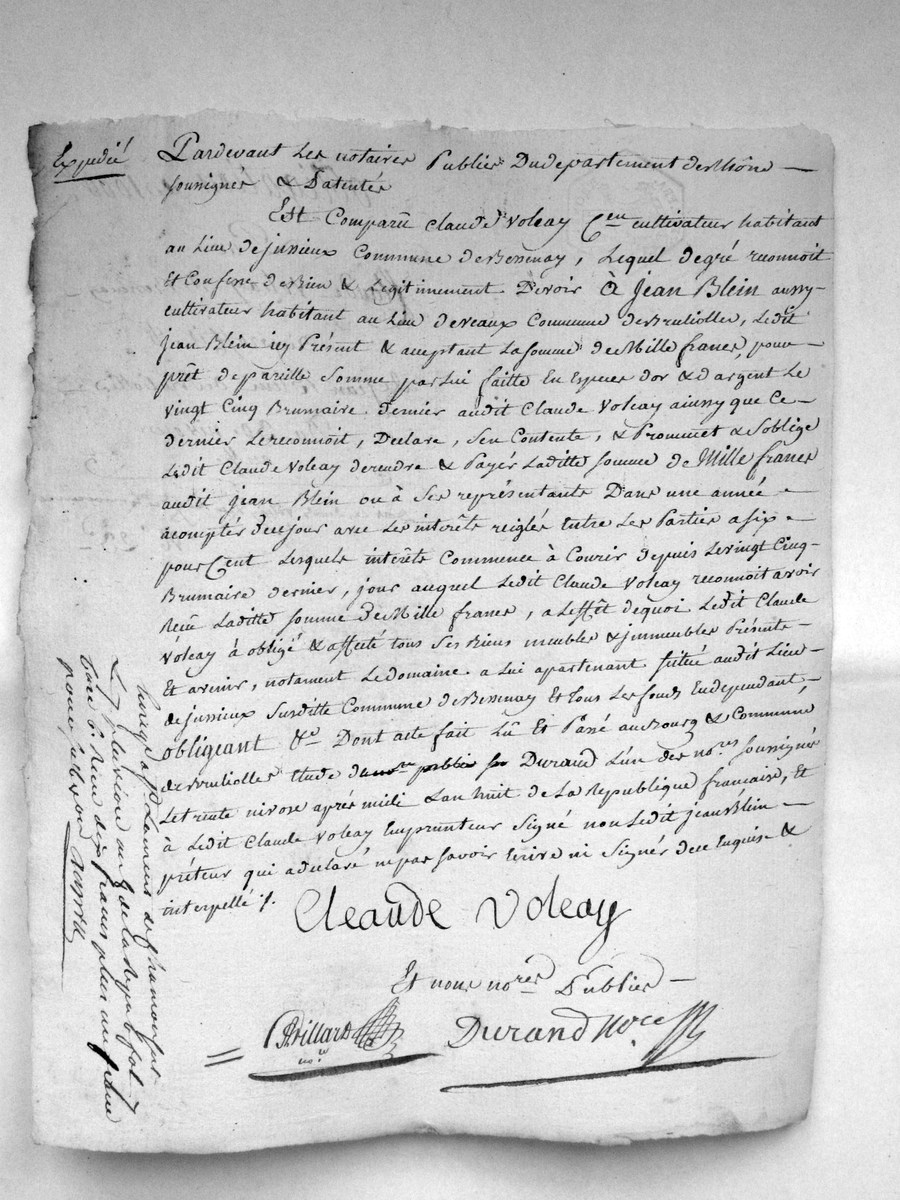 Expedié
Pardevant Les notaires Publics Dudepartement de Rhône
soussignés & Patentés
Est Comparû Claude Voleay Cen cultivateur habitant
au Lieu de jussieux Commune de Bessenay, Lequel degré reconnoit
Et Confesse de Bien & Legitimement Devoir à jean Blein aussy
cultivateur habitant au Lieu deveaux Commune de Brullioles, Ledit
jean Blein icy Présent & acceptant La somme de Mille francs, pour
prêt de pareille Somme par Lui faitte En Especes d'or & d'argent Le
vingt Cinq Brumaire dernier audit Claude Voleay ainssy que Ce
dernier Le reconnoit, Declare, Sen Contente, & Prommet & Soblige
Ledit Claude Voleay de rendre & Payér Laditte somme de Mille francs
audit jean Blein ou à Ses représentants Dans une année
acomptér de ce jour avec Les interêts reiglés Entre Les Parties a six
pour Cent Lesquels interêts Commence à Courir depuis Le vingt Cinq
Brumaire dernier, jour auquel Ledit Claude Voleay reconnoit avoir
Reçu Laditte somme de Mille francs, a Leffêt dequoi Ledit Claude
Voleay à obligé & affecté tous Ses Biens meubles & jmmeubles Présents
Et avenir, notament Le domaine a Lui apartenant scitué audit Lieu
de jussieux Susditte Commune de Bessenay Et tous Les fonds En dependant,
obligeant &a Dont acte fait Lû Et Passé au Bourg & Commune
de Brullioles Etude Durand L'un des nores soussignés
Le trente nivose après midi L'an huit de La Republique francaise, Et
à Ledit Claude Voleay Emprunteur Signé non Ledit jean Blein
prêteur qui a declaré ne pas savoir Ecrire ni Signér de ce Enquis &
interpellé ./.
Claude Voleay
Et nous nores Publics
Durand Nore
no.re
Enregé a Le
Pluviose an 8 de la Repub.
Reçu dix francs plus un franc
pour subvon